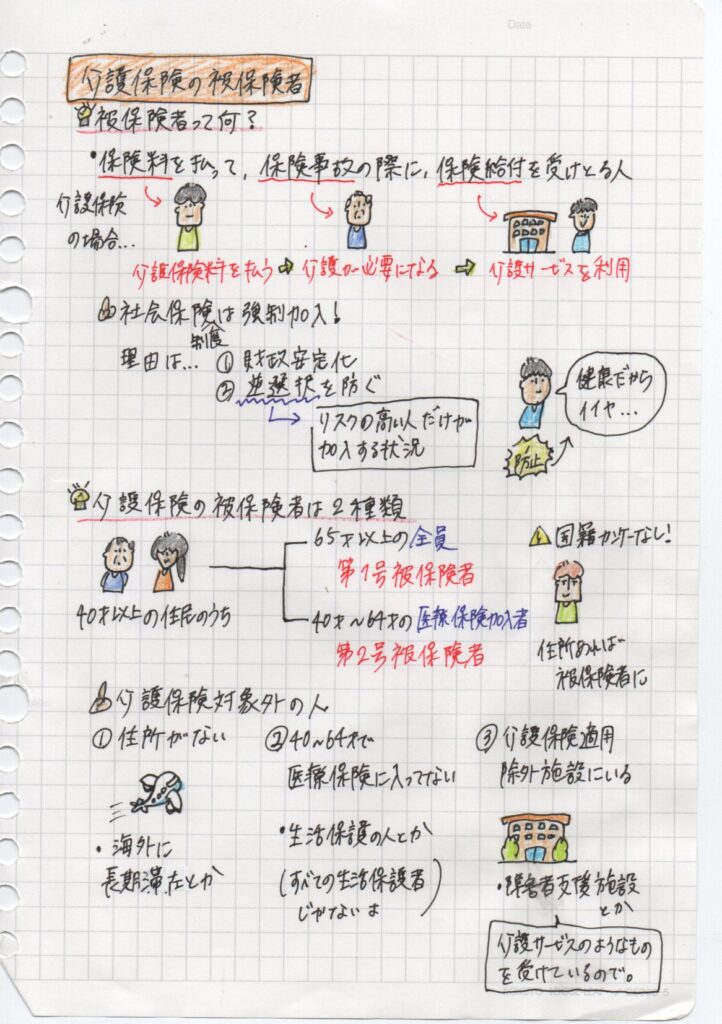 Date
介護保険の被保険者
被保険者って何？
・保険料を払って、保険事故の際に、保険給付を受けとる人
介護保険
の場合…
介護保険料を払う ➡ 介護が必要になる ➡ 介護サービスを利用
社会保険は強制加入！
制度
理由は… ① 財政安定化
② 逆選択を防ぐ
リスクの高い人だけが
加入する状況
健康だから
イイヤ…
防止
介護保険の被保険者は2種類
40才以上の住民のうち
65才以上の全員
第1号被保険者
40才〜64才の医療保険加入者
第2号被保険者
国籍カンケーなし！
住所あれば
被保険者に
介護保険対象外の人
① 住所がない
・海外に
長期滞在とか
② 40〜64才で
医療保険に入ってない
・生活保護の人とか
(すべての生活保護者
じゃないよ)
③ 介護保険適用
除外施設にいる
・障害者支援施設
とか
介護サービスのようなもの
を受けているので。